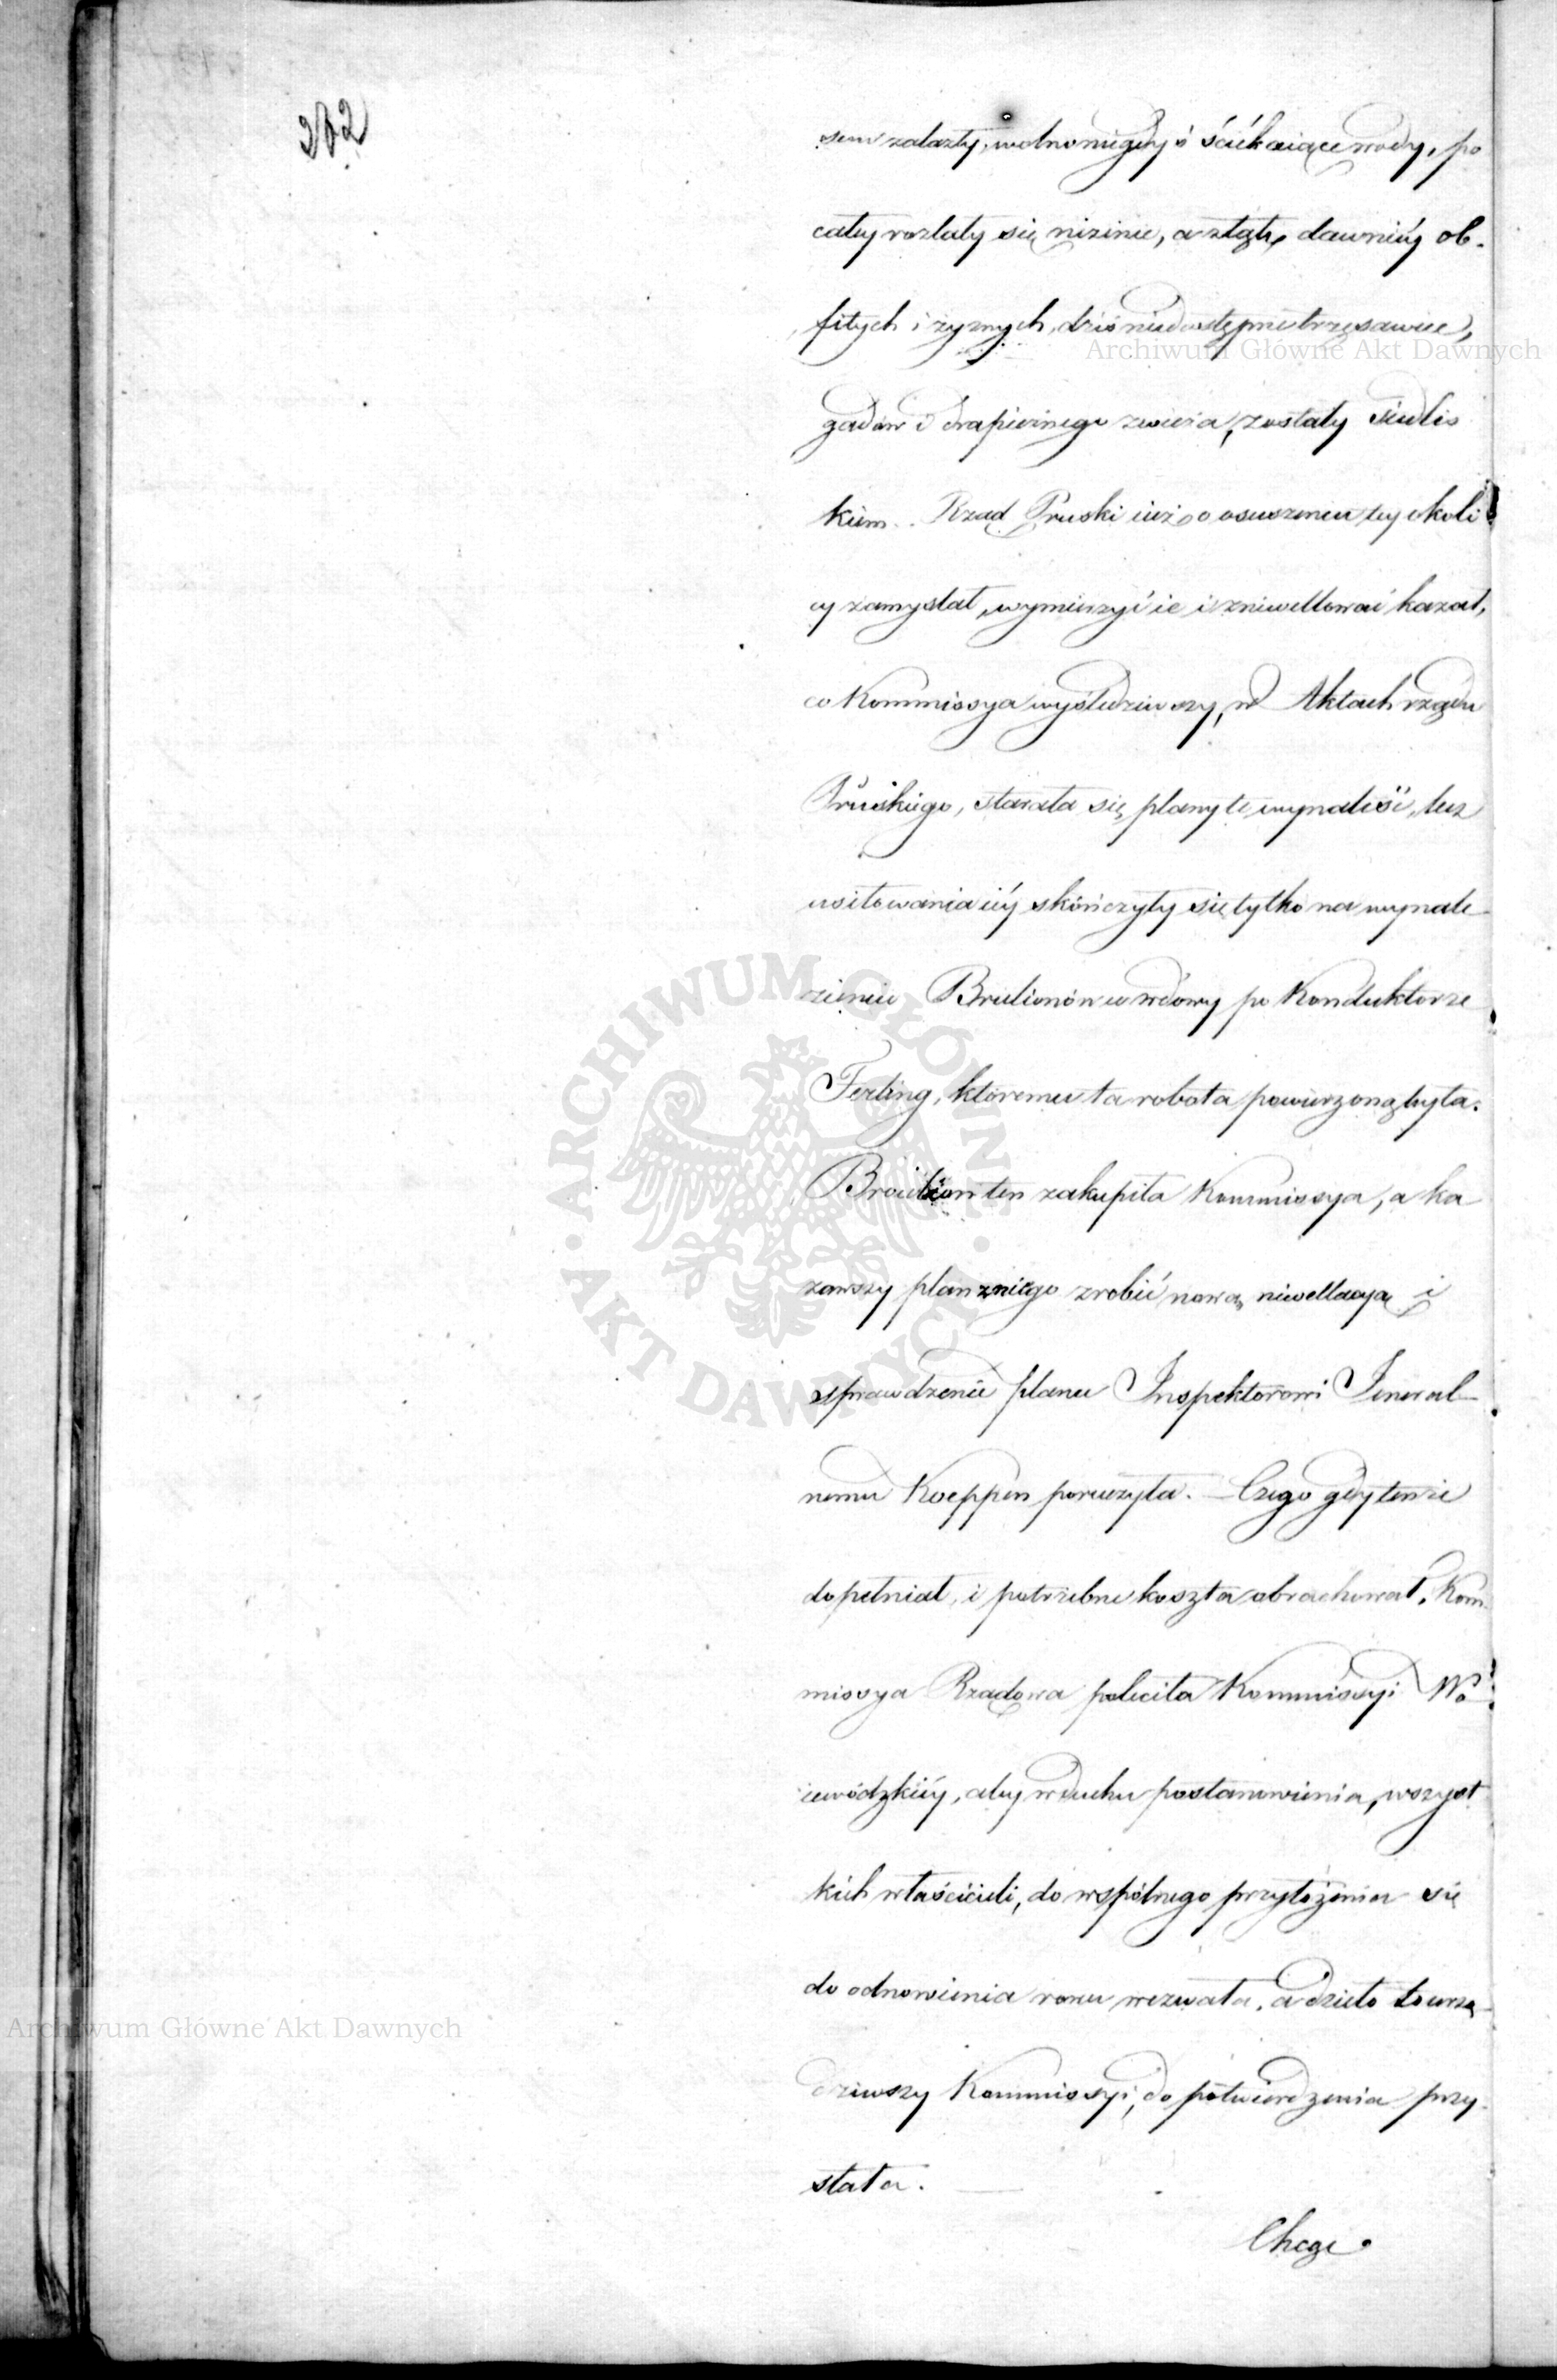 262
sem zalazły, wolno niegdyś ściekaiące wody, po
całey rozlały się nizinie, a z łąk, dawniéy ob-
fitych i żyznych, dziś niedostępne trzęsawice,
gadów i drapieżnego zwierza, zostały siedlis
kiem. Rząd Pruski iuż o osuszeniu tey okoli
cy zamyslał, wymierzyć ie i zniwellować kazał,
co Kommissya wyśledziwszy, w Aktach rządu
Pruskiego, starała się plany te wynaleść, lecz
usiłowania iéy skończyły się tylko na wynale
zieniu Brulionów u wdowy po Konduktorze
Ferling, któremu ta robota powierzoną była.
Brulion ten zakupiła Kommissya, a ka
zawszy plan z niego zrobić nową niwellacyą i
sprawdzenie planu Inspektorowi Jeneral-
nemu Koeppen poruczyła. – Czego gdy tenże
dopełniał, i potrzebne koszta obrachował, Kom-
missya Rządowa poleciła Kommissyi Wo-
iewódzkiéy, aby w duchu postanowienia, wszyst
kich właścicieli, do wspólnego przyłożenia się
do odnowienia rowu wezwała, a dzieło to urzą-
dziwszy Kommissyi, do potwierdzenia przy-
słała.
Chcąc
Archiwum Główne Akt Dawnych
ARCHIWUM GŁÓWNE AKT DAWNYCH
Archiwum Główne Akt Dawnych